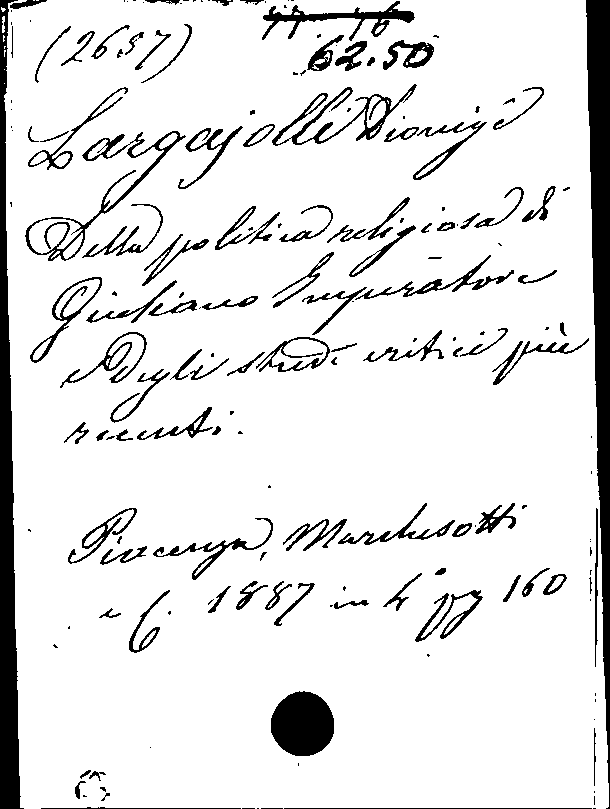 (2657) 77 76
62.50
Largajolli Dionigi
Della politica religiosa di
Giuliano Imperatore
e degli studi critici più
recenti.
Piacenza, Marchesotti
e C. 1887 in 4° pg 160